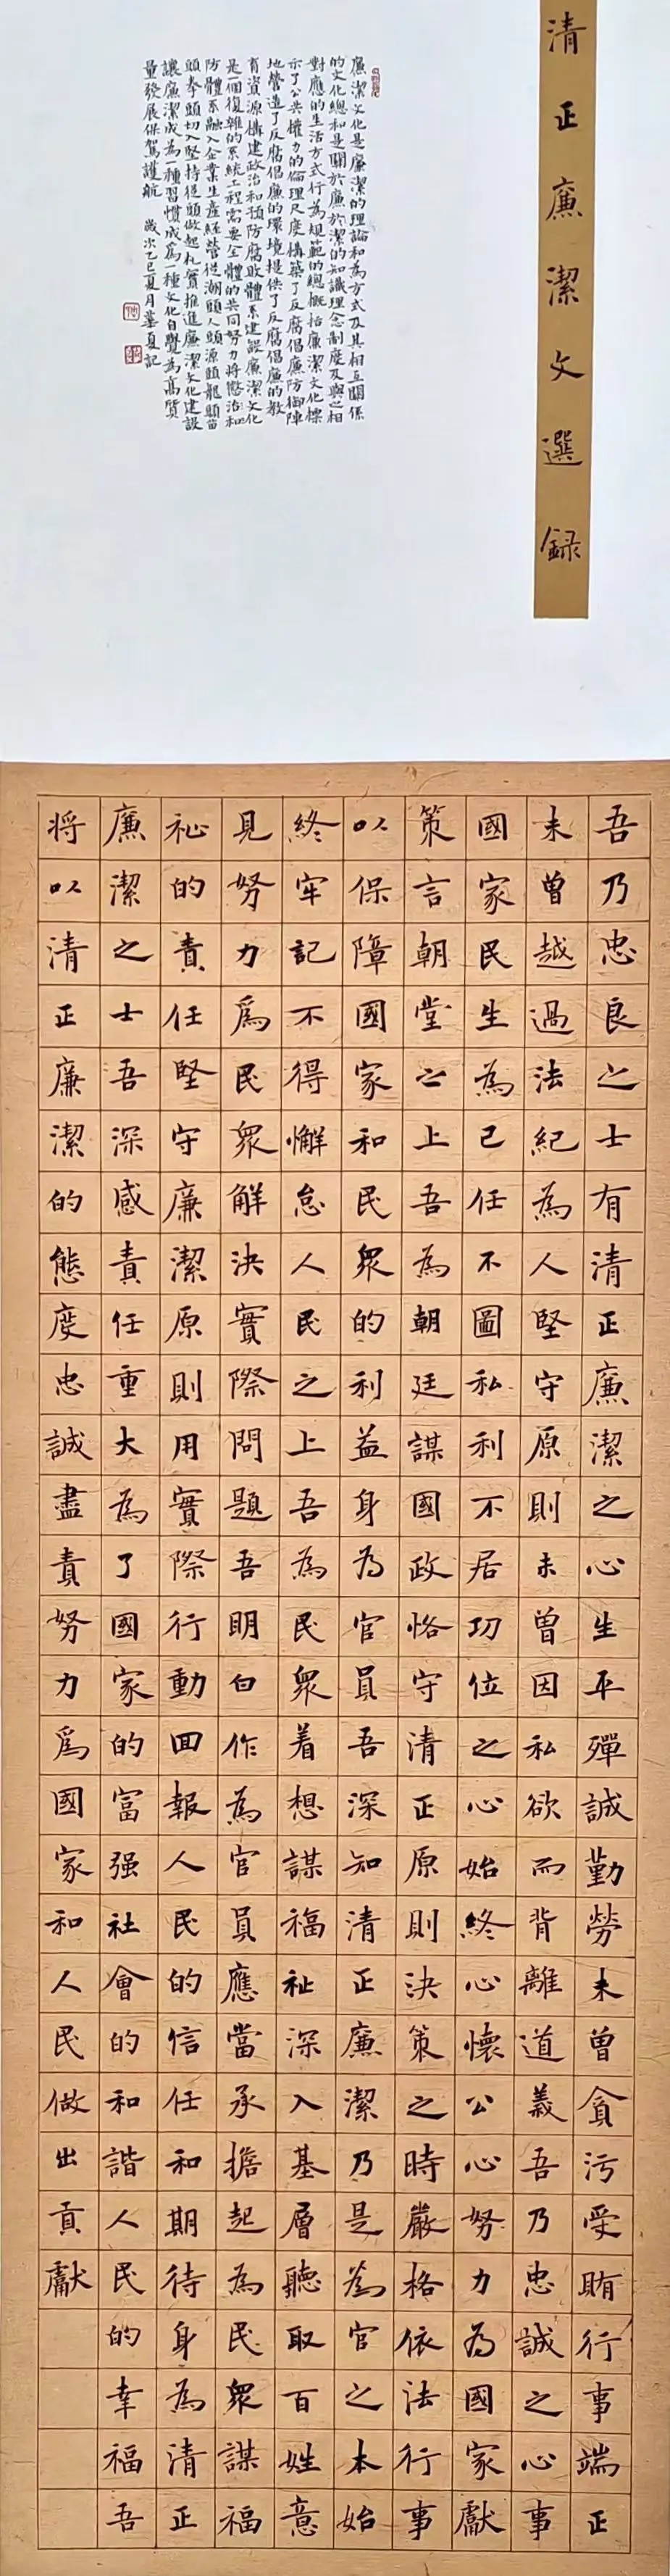 清正廉潔文選録
廉潔文化是廉潔的理論和為方式及其相互關係
的文化總和是關於廉於潔的知識理念制度及與之相
對應的生活方式行為規範的總概括廉潔文化標
示了公共權力的倫理尺度構築了反腐倡廉防御陣
地營造了反腐倡廉的環境提供了反腐倡廉的教
育資源構建政治和預防腐敗體系建設廉潔文化
是一個復雜的系統工程需要全體的共同努力將懲治和
防體系融入企業生產經營從潮頭人頭源頭龍頭苗
頭拳頭切入堅持從頭做起扎實推進廉潔文化建設
讓廉潔成為一種習慣成爲一種文化自覺為高質
量發展保駕護航 歲次乙巳夏月夏記
吾乃忠良之士有清正廉潔之心生平殫誠勤勞未曾貪污受賄行事端正
未曾越過法紀為人堅守原則未曾因私欲而背離道義吾乃忠誠之心事
國家民生為己任不圖私利不居功位之心始終心懷公心努力為國家獻
策言朝堂之上吾為朝廷謀國政恪守清正原則決策之時嚴格依法行事
以保障國家和民衆的利益身為官員吾深知清正廉潔乃是為官之本始
終牢記不得懈怠人民之上吾為民衆着想謀福祉深入基層聽取百姓意
見努力爲民衆解決實際問題吾明白作為官員應當承擔起為民衆謀福
祉的責任堅守廉潔原則用實際行動回報人民的信任和期待身為清正
廉潔之士吾深感責任重大為了國家的富强社會的和諧人民的幸福吾
將以清正廉潔的態度忠誠盡責努力爲國家和人民做出貢獻